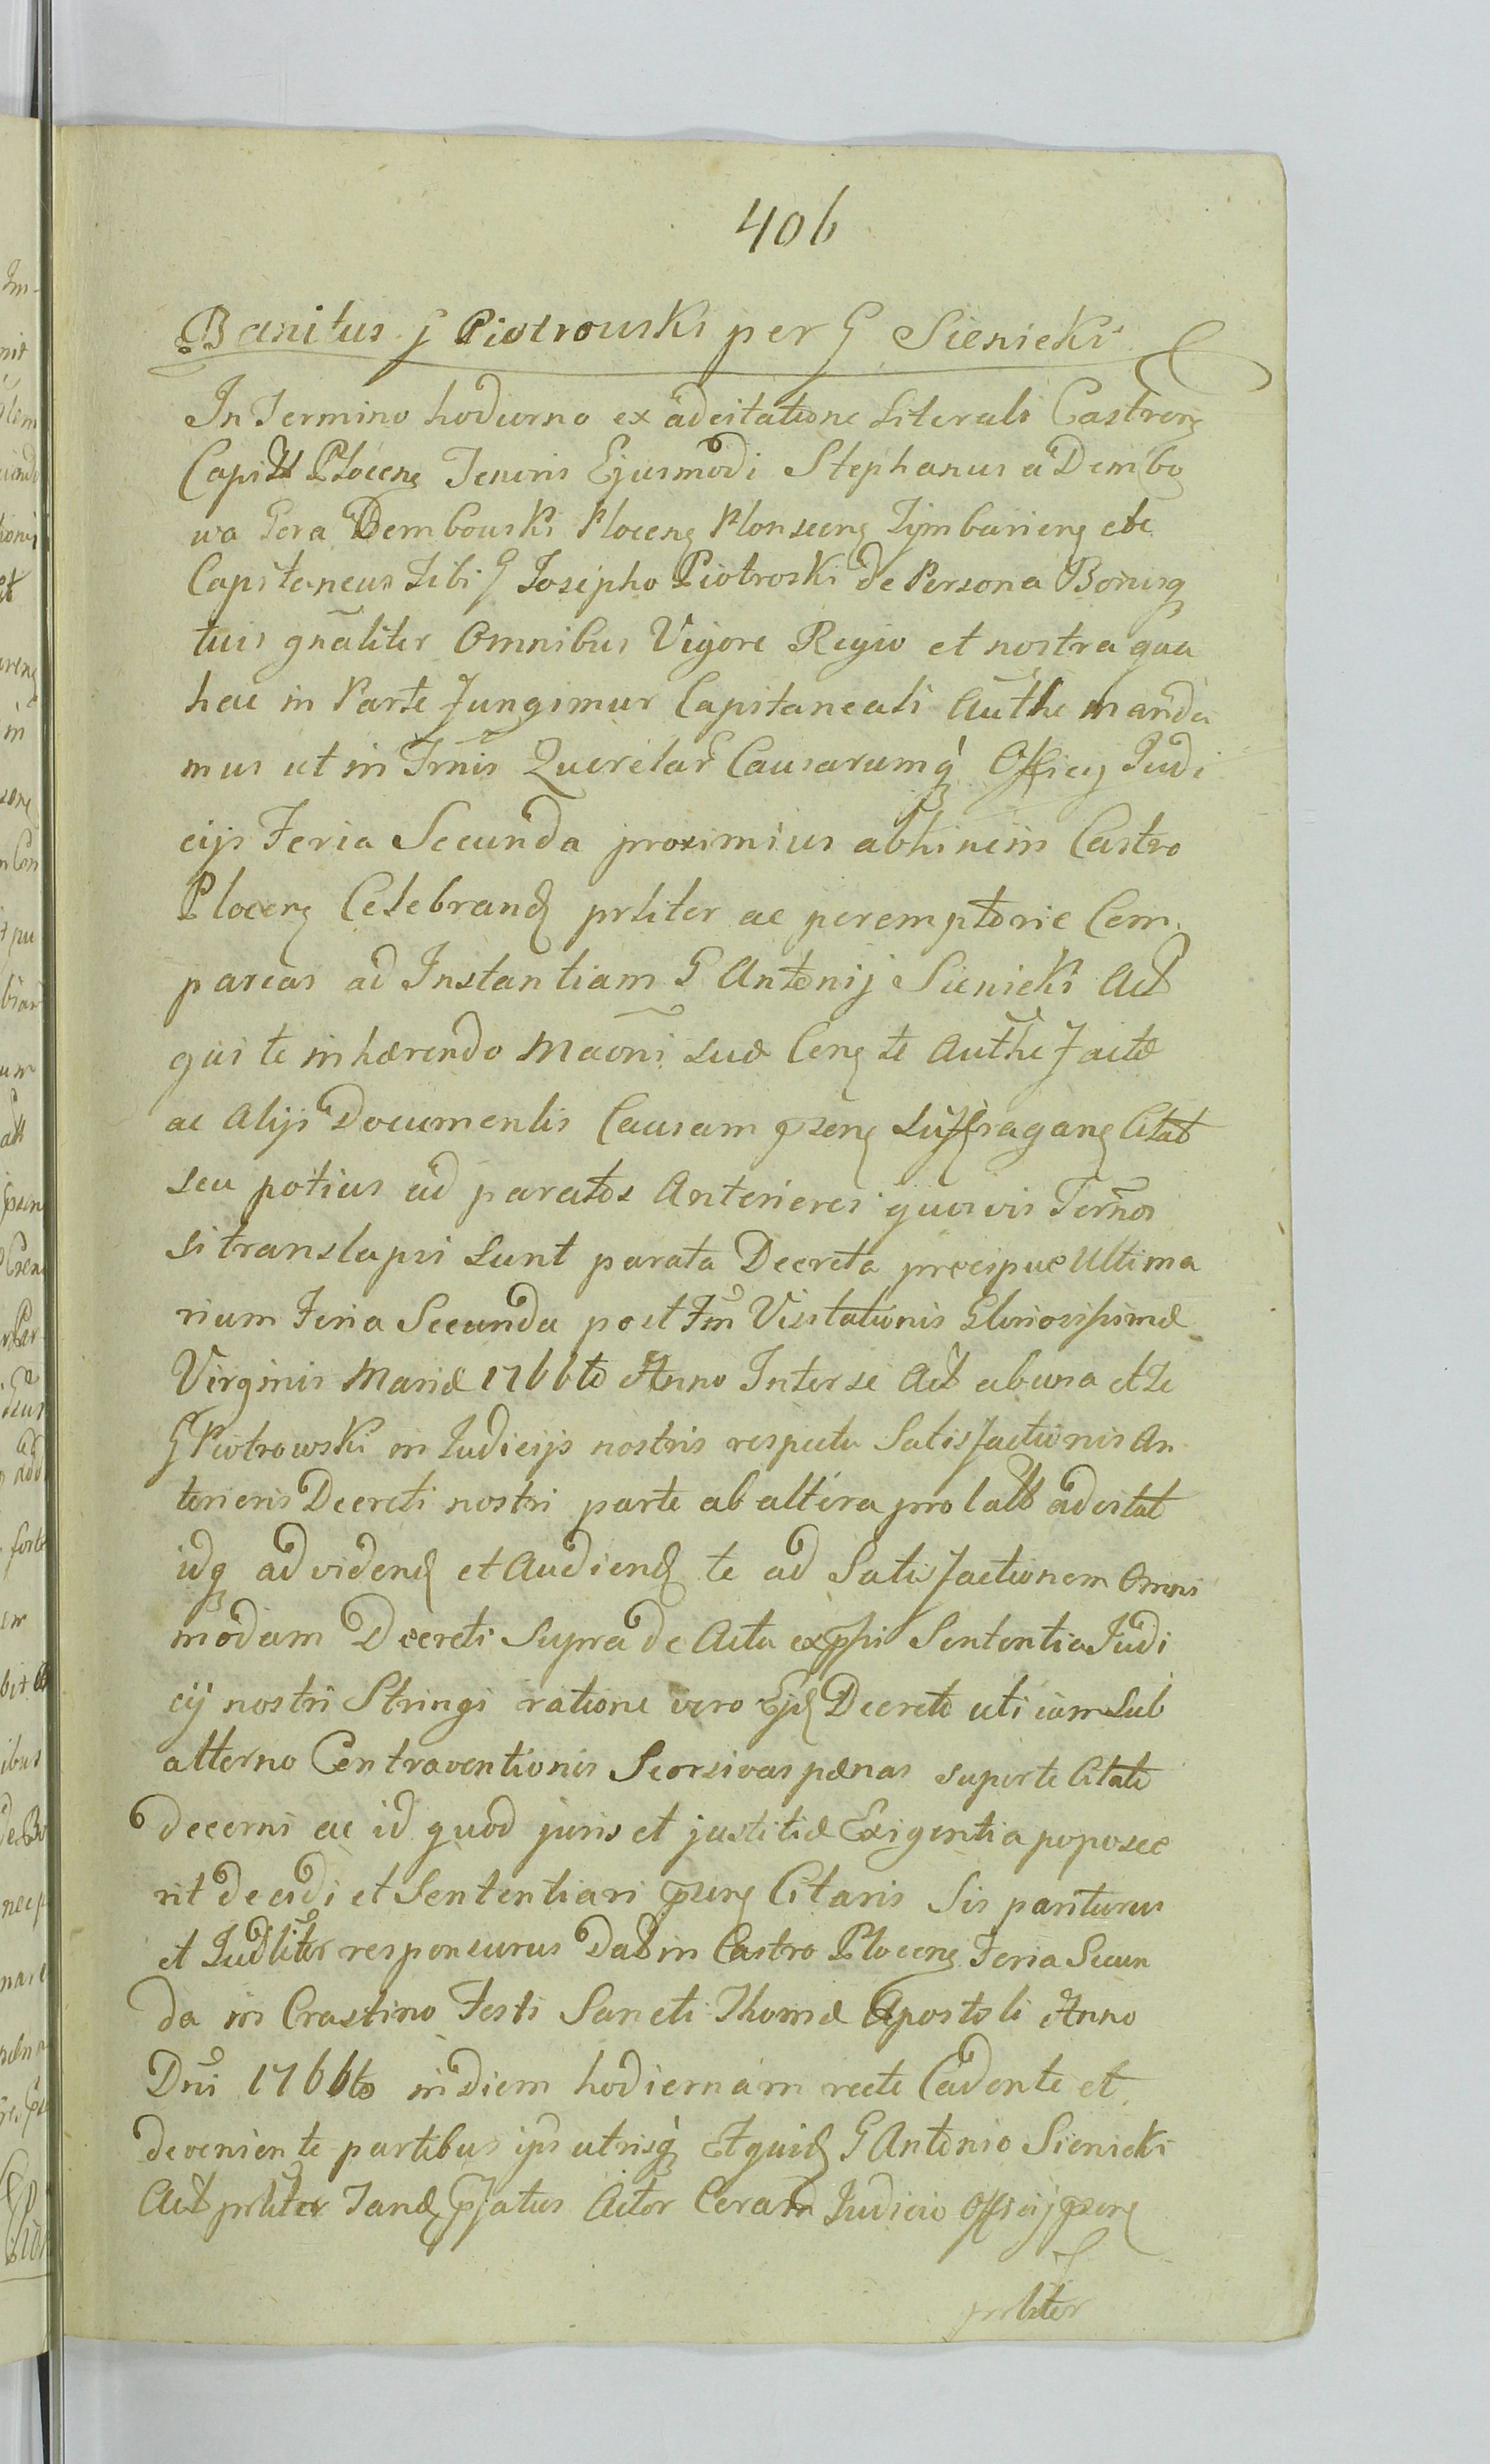 406
Banitus G Piotrowski per G Sienicki
In Termino hodierno ex adcitatione Literali Castren
Capitt Plocen Tenoris Ejusmodi Stephanus a Dembo
wa Gora Dembowski Plocen Plonscen Tymbarien etc
Capitaneus Tibi G Josepho Piotroski de Persona Bonisq
tuis gnaliter Omnibus Vigore Regio et nostra qua
hac in Parte fungimur Capitaneali Authe manda
mus ut in Tmis Querelar Causarumq Officij Judi
cijs Feria Secunda proximius abhinc in Castro
Plocen Celebrand prliter ac peremptorie Com
pareas ad Instantiam G Antonij Sienicki Act
qui te inhærendo Maoni suæ Cong te Authe factæ
ac Alijs Documentis Causam psen Suffragang Citat
seu potius ad paratos Anteriores quosvis Ternos
si translapsi sunt parata Decreta præcipue Ultima
rium Feria Secunda post Fm Visitationis Gloriosissimæ
Virginis Mariæ 1766to Anno Inter se Act ab una et Te
G Piotrowski in Judicijs nostris respectu Satisfactionis An
terioris Decreti nostri parte ab altera prolatt adcitat
idq ad vidend et Audiend te ad Satisfactionem Omni
modam Decreti supra de Actu expssi Sententia Judi
cij nostri Stringi ratione vero Ejd Decreto uti iam sub
alterno Contraventionis Scorsivas pænas super te Citato
decerni ac id quod juris et justitiæ Exigentia poposce
rit decidi et Sententiari psen Citaris Sis pariturus
et Judliter responsurus Dat in Castro Plocen Feria Secun
da in Crastino Festi Sancti Thomæ Apostoli Anno
Dni 1766to in diem hodiernam recte Cadente et
deveniente partibus ips utrisq Et quid G Antonio Sienicki
Act prliter Tand pfatus Actor Coram Judicio Officij psen
prliter